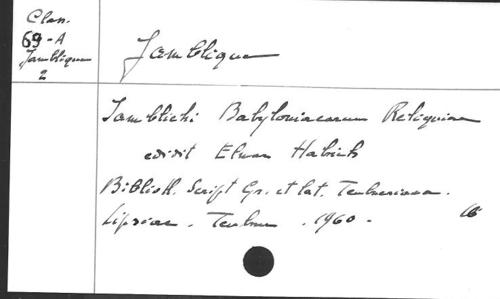 Clas.
69-A
Jamblique
2
Jamblique
Iamblichi Babyloniacarum Reliquiae
edidit Elmar Habich
Biblioth. Script Gr. et lat. Teubneriana.
Lipsiae. Teubner. 1960.